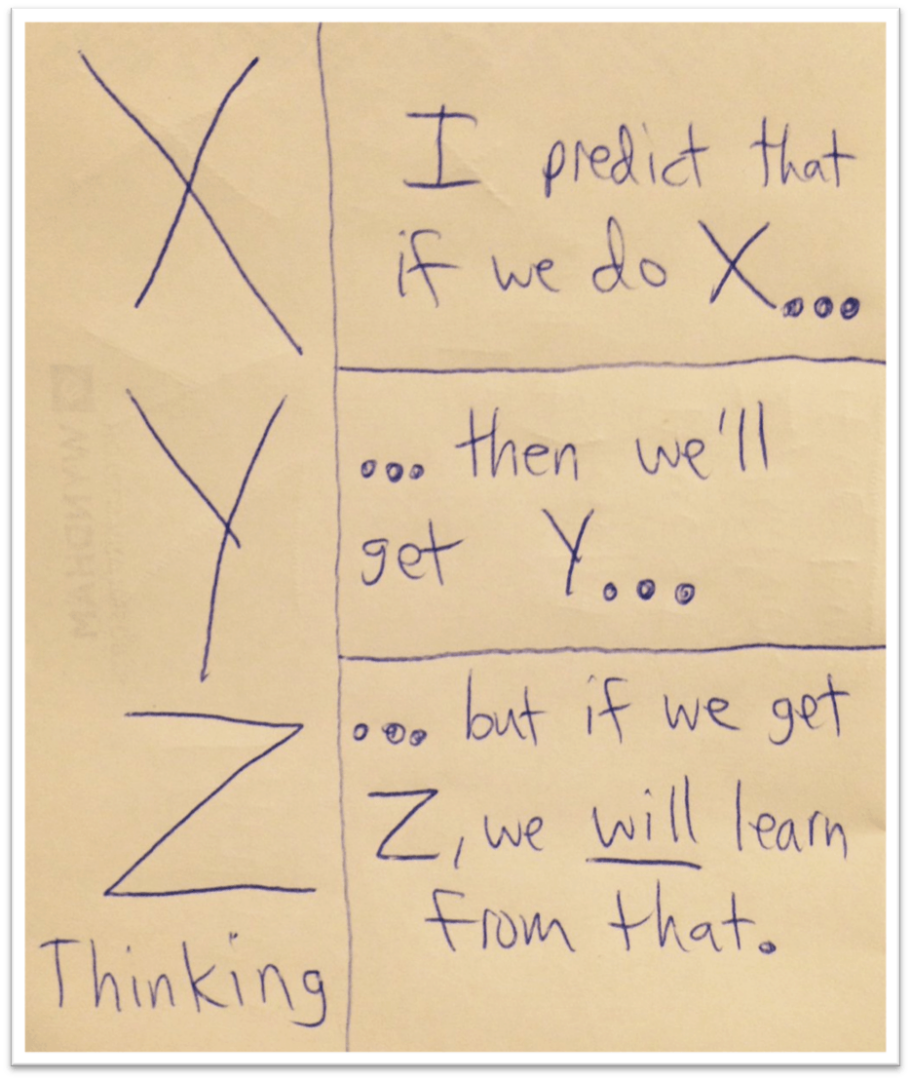 X
I predict that
if we do X...
Y
... then we'll
get Y...
Z
... but if we get
Z, we will learn
from that.
Thinking
WYNDHAM